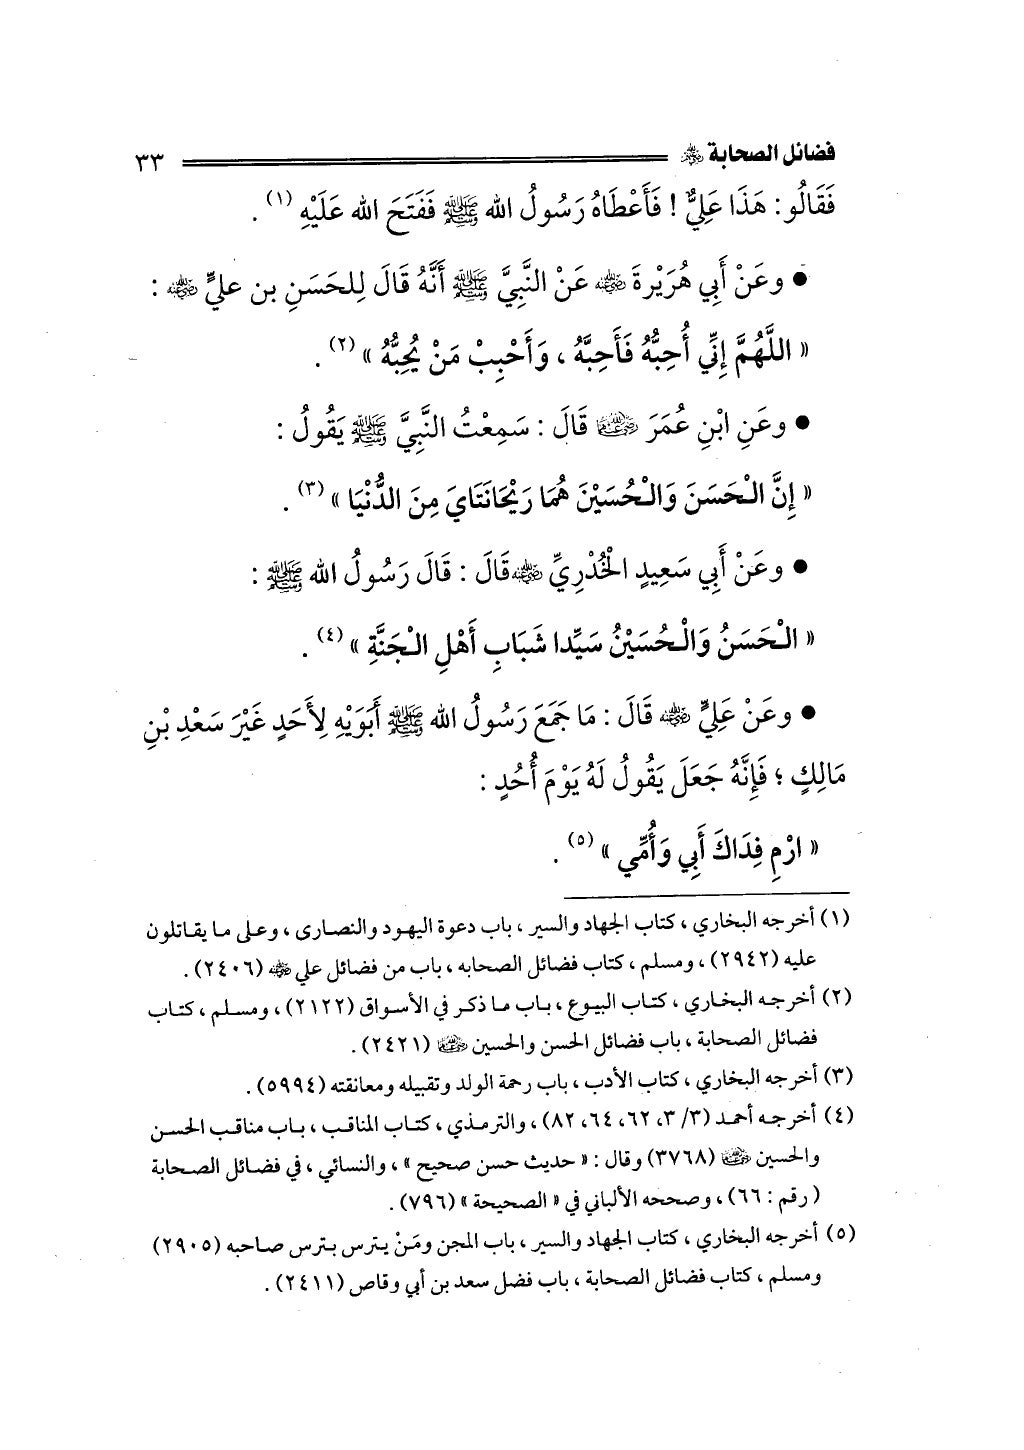 فضائل الصحابة ﵃ ٣٣
فَقَالُو: هَذَا عَلِيٌّ ! فَأَعْطَاهُ رَسُولُ الله ﷺ فَفَتَحَ الله عَلَيْهِ (١) .
● وعَنْ أَبِي هُرَيْرةَ ﵁ عَنْ النَّبِيَّ ﷺ أَنَّهُ قَالَ لِلحَسَنِ بن عليٍّ ﵁ :
« اللَّهُمَّ إِنِّي أُحِبُّهُ فَأَحِبَّهُ ، وَأَحْبِبْ مَنْ يُحِبُّهُ » (٢) .
● وعَنِ ابْنِ عُمَرَ ﵄ قَالَ : سَمِعْتُ النَّبِيَّ ﷺ يَقُولُ :
« إِنَّ الْحَسَنَ وَالْحُسَيْنَ هُمَا رَيْحَانَتَايَ مِنَ الدُّنْيَا » (٣) .
● وعَنْ أَبِي سَعِيدٍ الْخُدْرِيِّ ﵁ قَالَ : قَالَ رَسُولُ الله ﷺ :
« الْحَسَنُ وَالْحُسَيْنُ سَيِّدا شَبَابِ أَهْلِ الْجَنَّةِ » (٤) .
● وعَنْ عَلِيٍّ ﵁ قَالَ : مَا جَمَعَ رَسُولُ الله ﷺ أَبَوَيْهِ لِأَحَدٍ غَيْرَ سَعْدِ بْنِ
مَالِكٍ ؛ فَإِنَّهُ جَعَلَ يَقُولُ لَهُ يَوْمَ أُحُدٍ :
« ارْمِ فِدَاكَ أَبِي وَأُمِّي » (٥) .
(١) أخرجه البخاري ، كتاب الجهاد والسير ، باب دعوة اليهود والنصارى ، وعلى ما يقاتلون
عليه (٢٩٤٢) ، ومسلم ، كتاب فضائل الصحابه ، باب من فضائل علي ﵁ (٢٤٠٦) .
(٢) أخرجه البخاري ، كتاب البيوع ، باب ما ذكر في الأسواق (٢١٢٢) ، ومسلم ، كتاب
فضائل الصحابة ، باب فضائل الحسن والحسين ﵄ (٢٤٢١) .
(٣) أخرجه البخاري ، كتاب الأدب ، باب رحمة الولد وتقبيله ومعانقته (٥٩٩٤) .
(٤) أخرجه أحمد (٣/ ٣، ٦٢، ٦٤، ٨٢) ، والترمذي ، كتاب المناقب ، باب مناقب الحسن
والحسين ﵄ (٣٧٦٨) وقال : « حديث حسن صحيح » ، والنسائي ، في فضائل الصحابة
( رقم : ٦٦) ، وصححه الألباني في « الصحيحة » (٧٩٦) .
(٥) أخرجه البخاري ، كتاب الجهاد والسير ، باب المجن ومَنْ يترس بترس صاحبه (٢٩٠٥)
ومسلم ، كتاب فضائل الصحابة ، باب فضل سعد بن أبي وقاص (٢٤١١) .